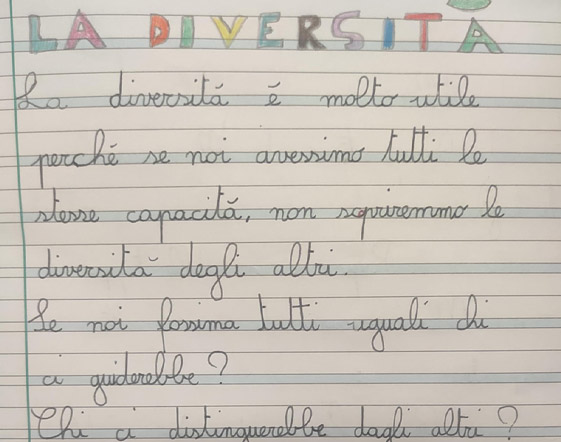 LA DIVERSITÀ
La diversità è molto utile
perché se noi avessimo tutti le
stesse capacità, non scpriremmo le
diversità degli altri.
Se noi fossima tutti uguali chi
ci guiderebbe?
Chi ci distinguerebbe dagli altri?